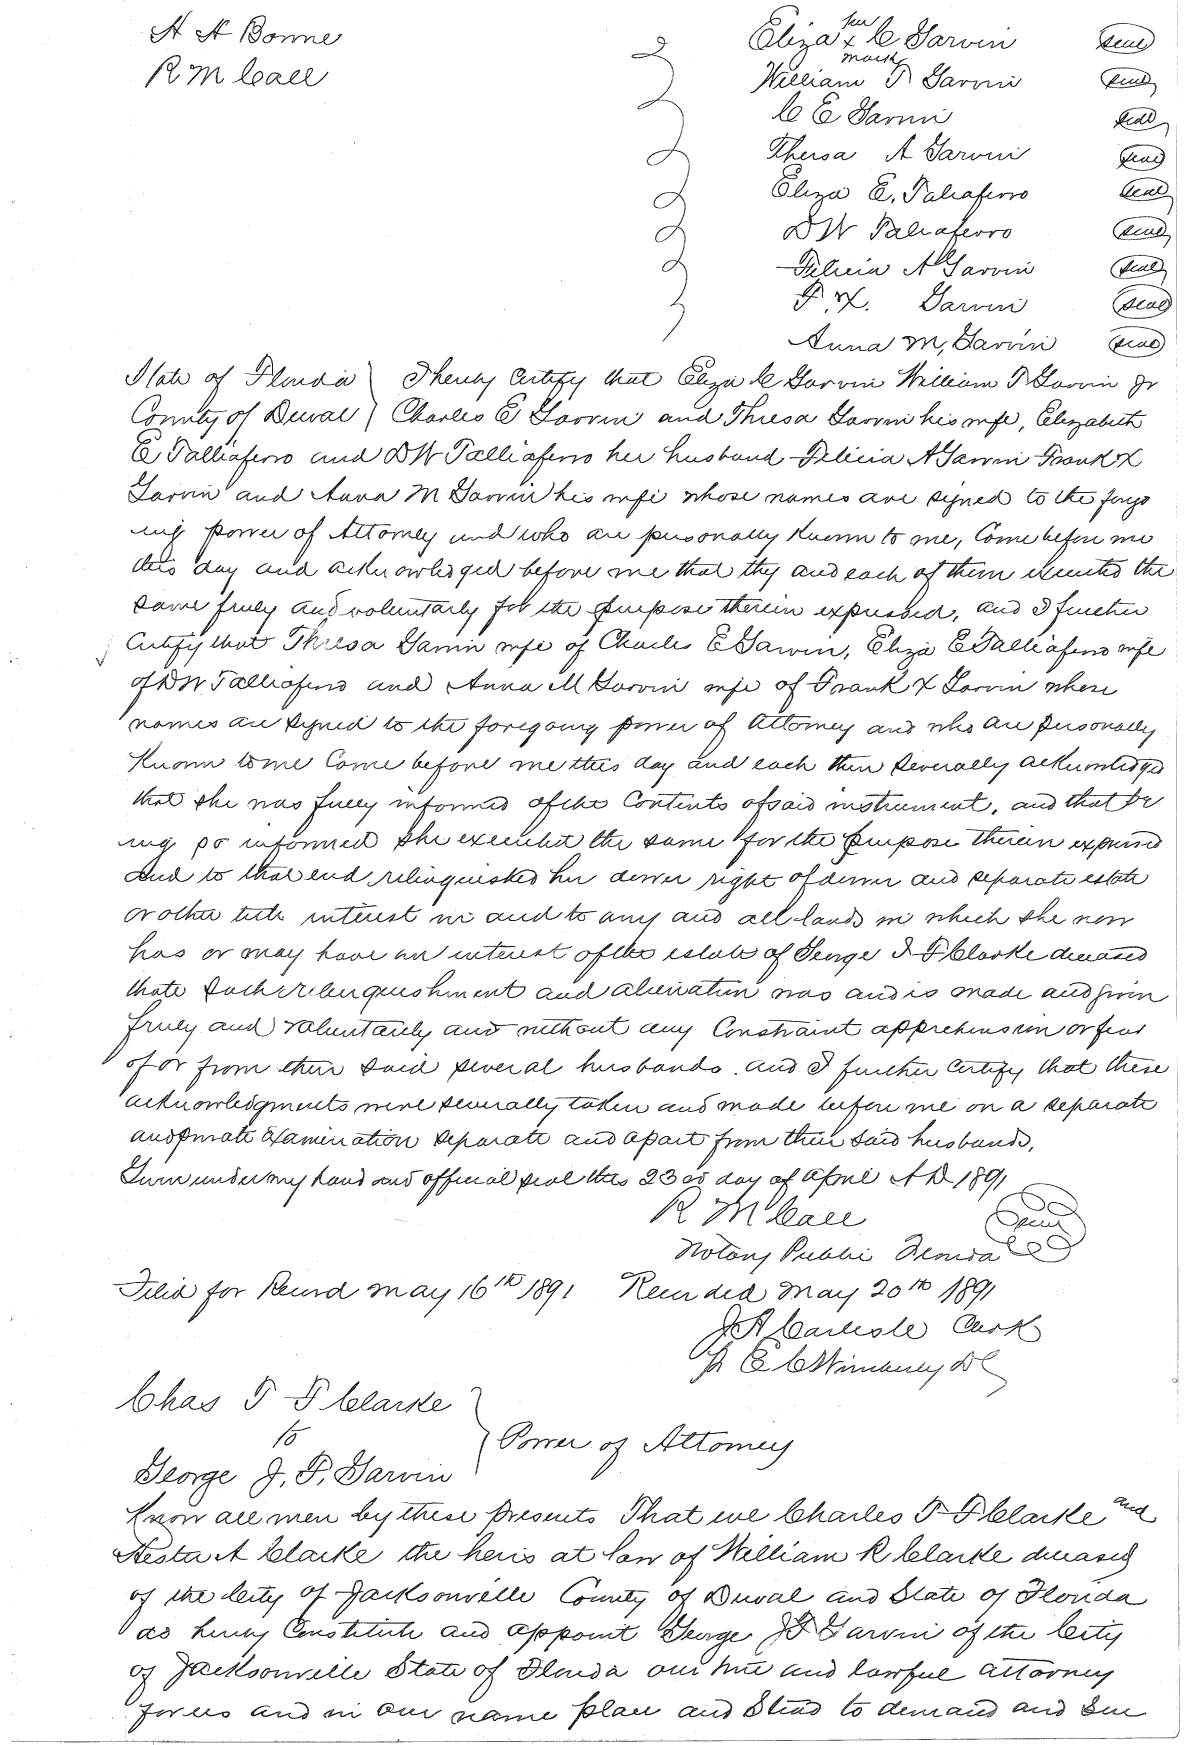 A A Bonne
R M Call
Eliza her x mark C Garvin seal
William F Garvin seal
C E Garvin seal
Thersa A Garvin seal
Eliza E. Taliaferro seal
DW Taliaferro seal
Felicia A Garvin seal
F. X. Garvin seal
Anna M, Garvin seal
State of Florida } I hereby Certify that Eliza C Garvin William F Garvin Jr
County of Duval } Charles E Garvin and Thresa Garvin his wife, Elizabeth
E Talliaferro and DW Talliaferro her husband Felicia A Garvin Frank X
Garvin and Anna M Garvin his wife whose names are signed to the forgo
ing power of Attorney and who are personally Known to me, Come before me
this day and acknowledged before me that they and each of them executed the
same freely and voluntarily for the purpose therein expressed, and I further
Certify that Thresa Garvin wife of Charles E Garvin, Eliza E Talliaferro wife
of DW Talliaferro and Anna M Garvin wife of Frank X Garvin whose
names are signed to the foregoing power of Attorney and who are personally
Known to me Come before me this day and each then severally acknowledged
that she was fully informed of the Contents of said instrument, and that be
ing so informed she executed the same for the purpose therein expressed
and to that end relinquished her dower right of dower and separate estate
or other title interest in and to any and all lands in which she now
has or may have an interest of the estate of George J F Clarke deceased
that such relinquishment and alienation was and is made and given
freely and voluntarily and without any Constraint apprehension or fear
of or from their said several husbands. and I further Certify that these
acknowledgments were severally taken and made before me on a separate
and private Examination separate and apart from their said husbands.
Given under my hand and official seal this 23rd day of April AD 1891
R M Call seal
Notary Public Florida
Filed for Record May 16th 1891 Recorded May 20th 1891
J A Carlisle Clerk
E C Wimberley DC
Chas T F Clarke
to } Power of Attorney
George J. F. Garvin
Know all men by these Presents That we Charles T F Clarke and
Hesta A Clarke the heirs at law of William R Clarke deceased
of the City of Jacksonville County of Duval and State of Florida
do hereby Constitute and appoint George J F Garvin of the City
of Jacksonville State of Florida our true and lawful attorney
for us and in our name place and Stead to demand and Sue